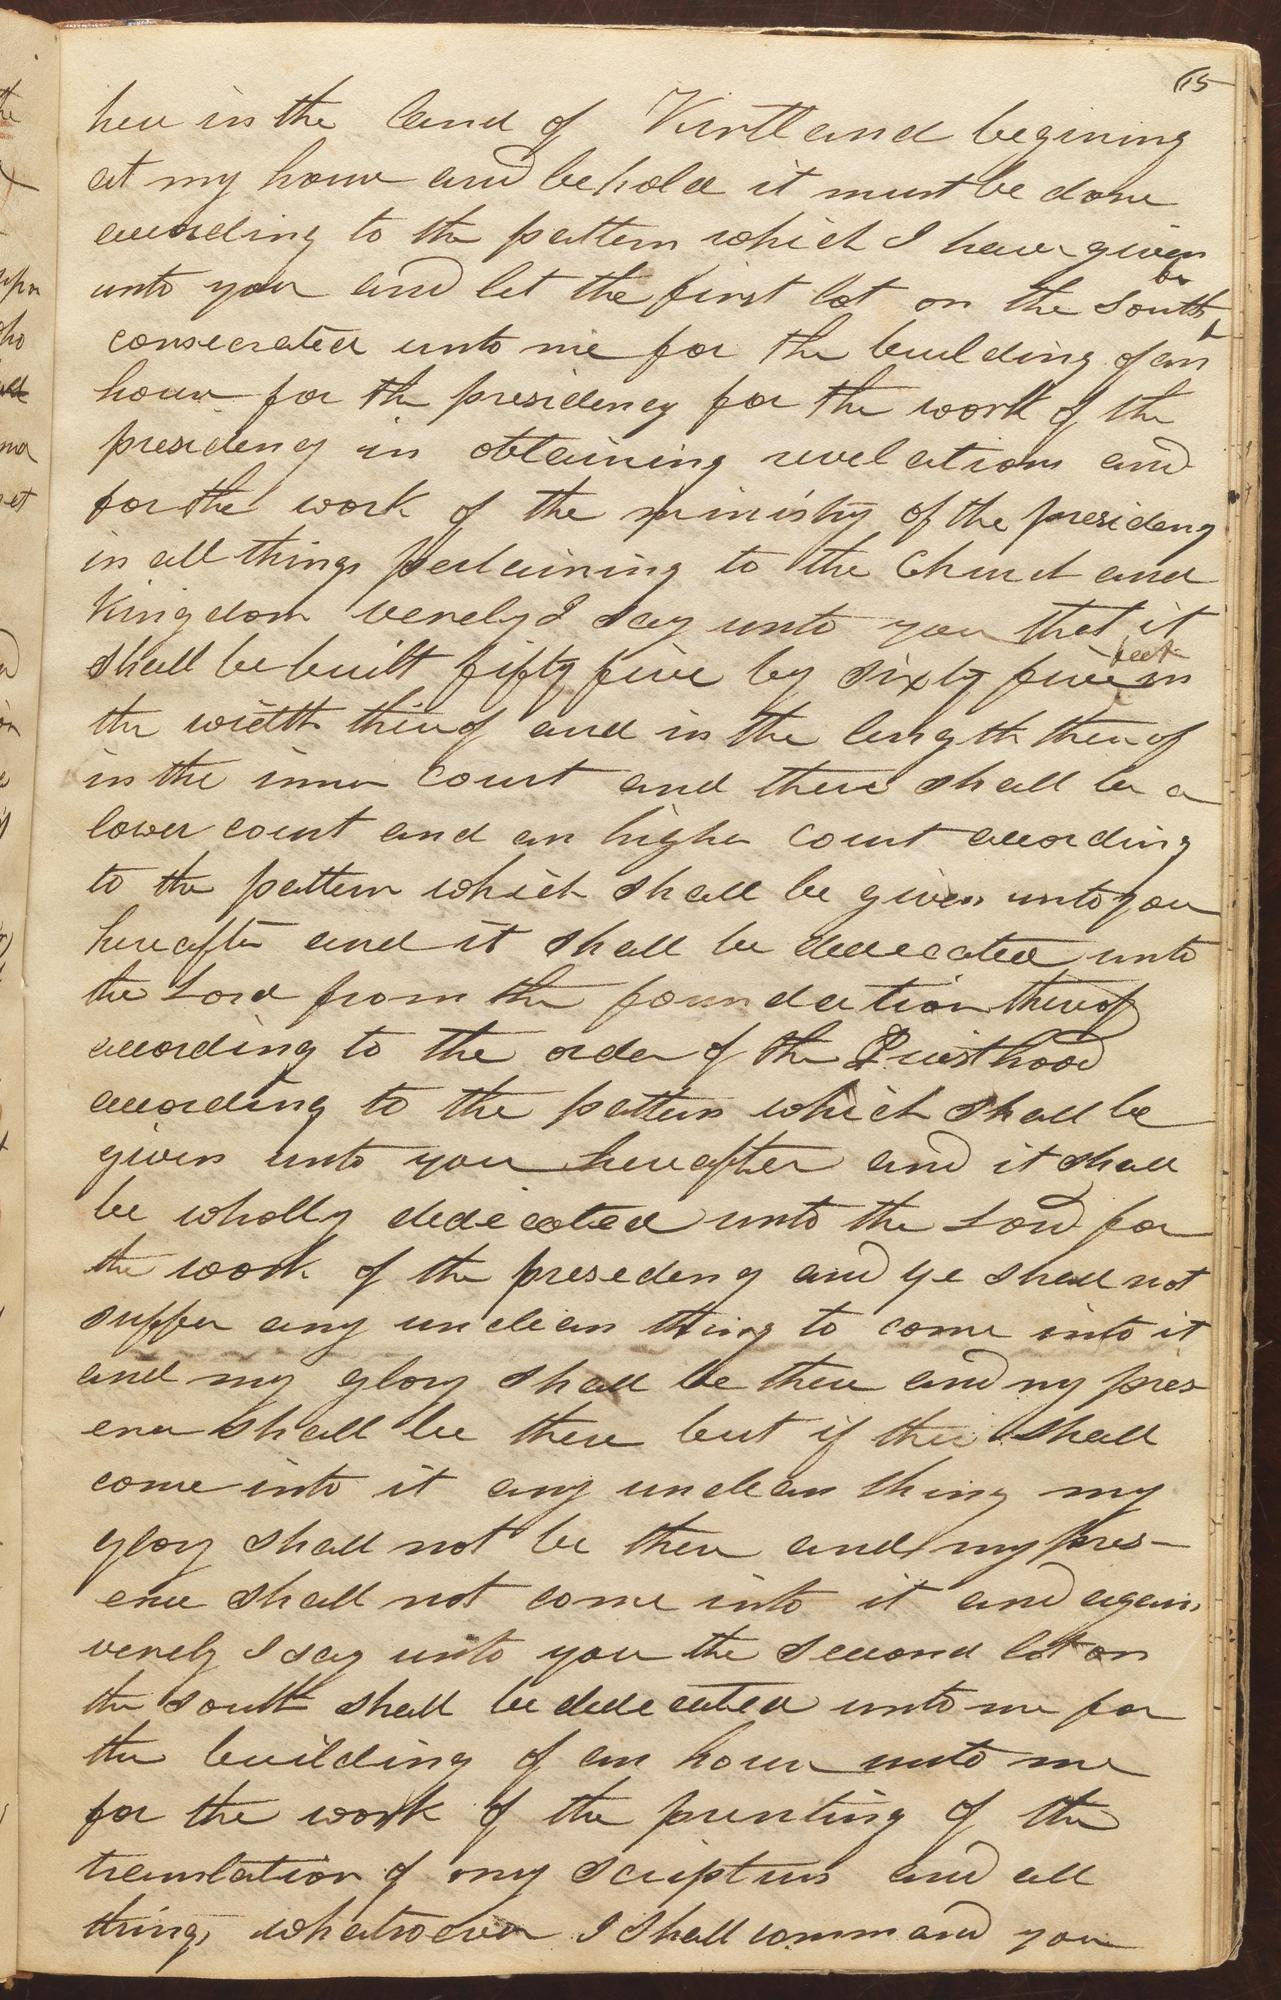 65
here in the land of Kirtland begining
at my house and behold it must be done
according to the pattern which I have given
unto you and let the first lot on the South be
consecrated unto me for the building of an
house for the presidency for the work of the
presidency in obtaining revelations and
for the work of the ministry of the presidency
in all things pertaining to the Church and
Kingdom verely I say unto you that it
shall be built fifty five by sixty five feet in
the width thereof and in the length thereof
in the inner court and there shall be a
lower court and an higher court according
to the pattern which shall be given unto you
hereafter and it shall be dedecated unto
the Lord from the foundation thereof
according to the order of the Priesthood
according to the pattern which shall be
given unto you hereafter and it shall
be wholly dedecated unto the Lord for
the work of the presedency and ye shall not
suffer any unclean thing to come into it
and my glory shall be there and my pres
ence shall be there but if there shall
come into it any unclean thing my
glory shall not be there and my pres-
ence shall not come into it and again
verely I say unto you the second lot on
the south shall be dedecated unto me for
the building of an house unto me
for the work of the printing of the
translation of my scriptures and all
things whatsoever I shall command you